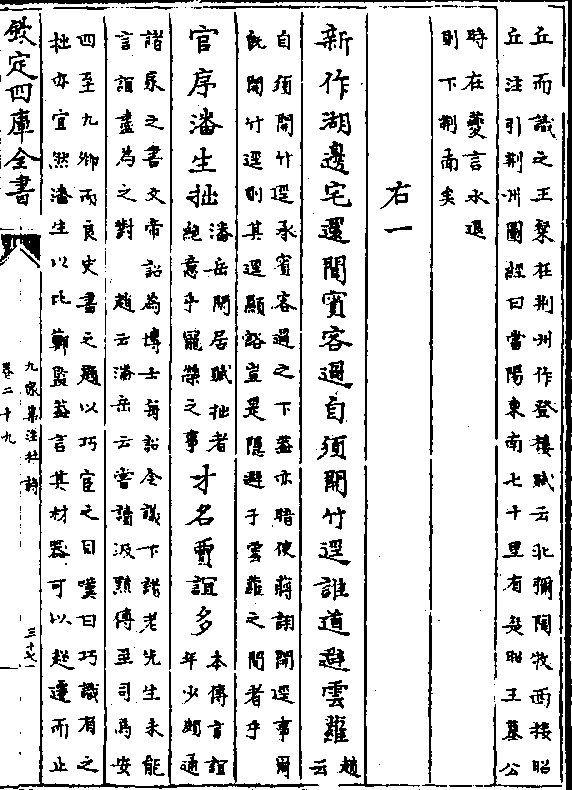 丘而識之王粲在荆州作登樓賦云北彌陶牧西接昭
丘注引荆州圖經曰當陽東南七十里有楚昭王墓公
時在夔言永退
則下荆南矣
右一
新作湖邊宅還聞賓客過自須開竹逕誰道避雲蘿趙云
自須開竹逕承賓客過之下葢亦暗使蔣詡開逕事爾
既開竹逕則其逕顯豁豈是隠避于雲蘿之間者乎
官序潘生拙潘岳閒居賦拙者絶意乎寵榮之事才名賈誼多本傳言誼年少頗通
諸家之書文帝詔為博士每詔令議下諸老先生未能
言誼盡為之對 趙云潘岳云嘗讀汲黯傳至司馬安
四至九卿而良史書之題以巧宦之目嘆曰巧誠有之
拙亦宜然潘生以比鄭監葢言其材器可以超遷而止
欽定四庫全書
九家集注杜詩
卷二十九
三十七